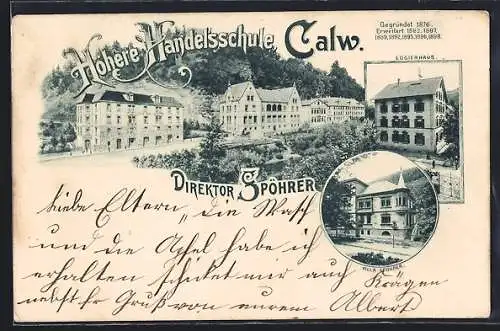 Höhere Handelsschule Calw.
Gegründet 1876.
Erweitert 1882, 1887,
1889, 1892, 1895, 1896, 1898.
LOGIERHAUS.
DIREKTOR SPÖHRER
VILLA SPÖHRER
Liebe Eltern, die Wasch
und die Apfel habe ich
erhalten schicket mir auch Krägen
nebst Gruß von eurem Albert